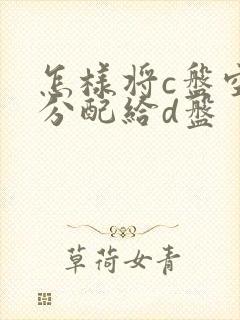 怎样将c盘空
分配给d盘
草荷女青